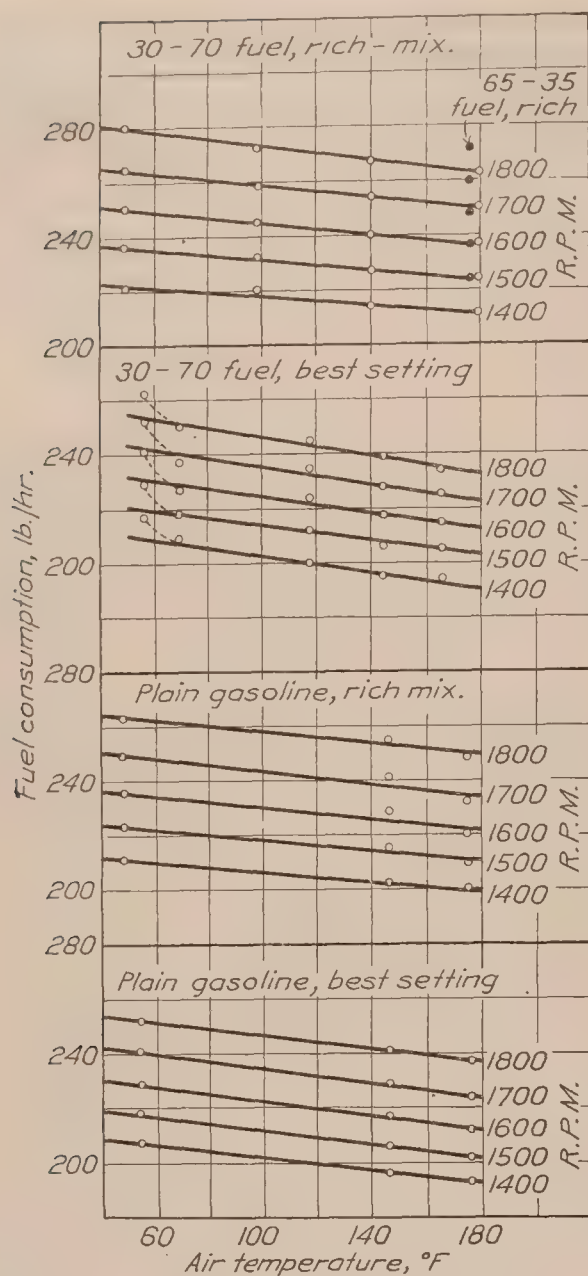 30-70 fuel, rich-mix.
65-35
fuel, rich
280
240
200
1800
1700
1600
1500
1400
R.P.M.
30-70 fuel, best setting
240
200
280
1800
1700
1600
1500
1400
R.P.M.
Fuel consumption, lb./hr.
Plain gasoline, rich mix.
240
200
280
1800
1700
1600
1500
1400
R.P.M.
Plain gasoline, best setting
240
200
1800
1700
1600
1500
1400
R.P.M.
60 100 140 180
Air temperature, °F